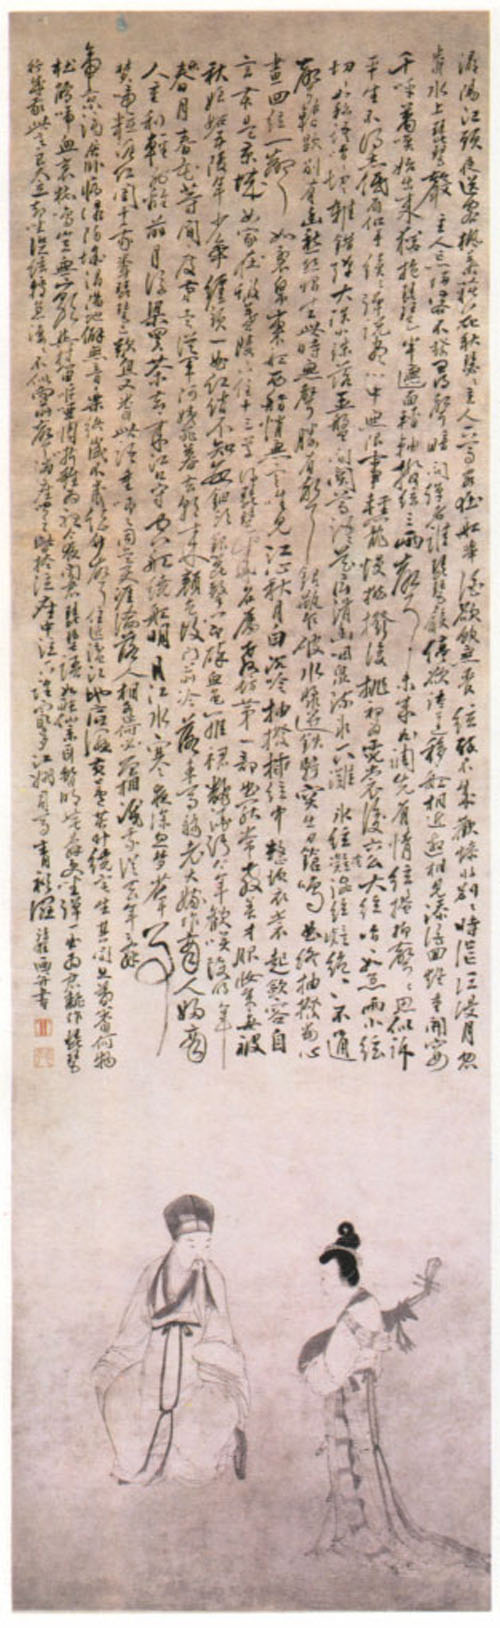 潯陽江頭夜送客楓葉荻花秋瑟瑟主人下馬客在船舉酒欲飲無管絃醉不成歡慘將別別時茫茫江浸月忽
聞水上琵琶聲主人忘歸客不發尋聲暗問彈者誰琵琶聲停欲語遲移船相近邀相見添酒回燈重開宴
千呼萬喚始出來猶抱琵琶半遮面轉軸撥絃三兩聲未成曲調先有情絃絃掩抑聲聲思似訴
平生不得志低眉信手續續彈說盡心中無限事輕籠慢撚撥復挑初為霓裳後六么大絃嘈嘈如急雨小絃
切切如私語嘈嘈切切雜錯彈大珠小珠落玉盤間關鶯語花底滑幽咽泉流水下灘水絃凝絕絃凝絕不通
聲暫歇別有幽愁暗恨生此時無聲勝有聲銀瓶乍破水漿迸鐵騎突出刀鎗鳴曲終抽撥當心
畫四絃一聲如裂帛東船西舫悄無言唯見江心秋月白沉吟抽撥插絃中整頓衣裳起斂容自
言本是京城女家在蝦蟇陵下住十三學得琵琶成名屬教坊第一部曲罷常教善才服妝成每被
秋娘妒五陵年少爭纏頭一曲紅綃不知數鈿頭銀篦擊節碎血色羅裙翻酒污今年歡笑復明年
秋月春風等閒度弟走從軍阿姨死暮去朝來顏色故門前冷落車馬稀老大嫁作商人婦商
人重利輕別離前月浮梁買茶去去來江口守空船繞船明月江水寒夜深忽夢少年事
夢啼粧淚紅闌干我聞琵琶已歎息又聞此語重唧唧同是天涯淪落人相逢何必曾相識我從去年辭
帝京謫居臥病潯陽城潯陽地僻無音樂終歲不聞絲竹聲住近湓江地低濕黃蘆苦竹繞宅生其間旦暮聞何物
杜鵑啼血猿哀鳴豈無山歌與村笛嘔啞嘲哳難為聽今夜聞君琵琶語如聽仙樂耳暫明莫辭更坐彈一曲為君翻作琵琶
行感我此言良久立却坐促絃絃轉急淒淒不似向前聲滿座重聞皆掩泣座中泣下誰最多江州司馬青衫濕